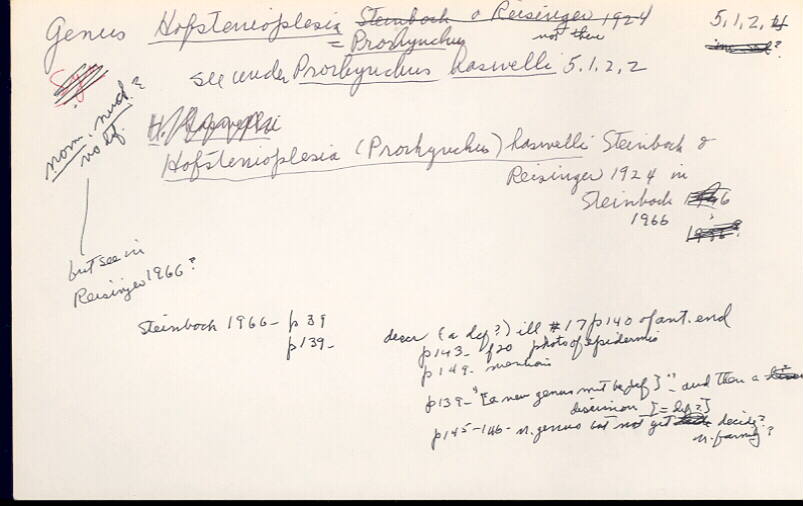 Genus Hofstenioplesia Steinbock & Reisinger 1924 5,1,2,4
= Prorhynchus not there
see under Prorhynchus haswelli 5,1,2,2
nom. nud.?
no def.
Hofstenioplesia (Prorhynchus) haswelli Steinbock &
Reisinger 1924 in
Steinbock
1966
but see in
Reisinger 1966?
Steinbock 1966 - p 39 descr (a def?) ill #17 p140 of ant. end
p139 - p143 - f20 photo of epidermis
p149 - mentions
p139 - "[a new genus must be def]" - and then a
discussion [= def?]
p145-146 - n. genus but not yet decide?
n. family?